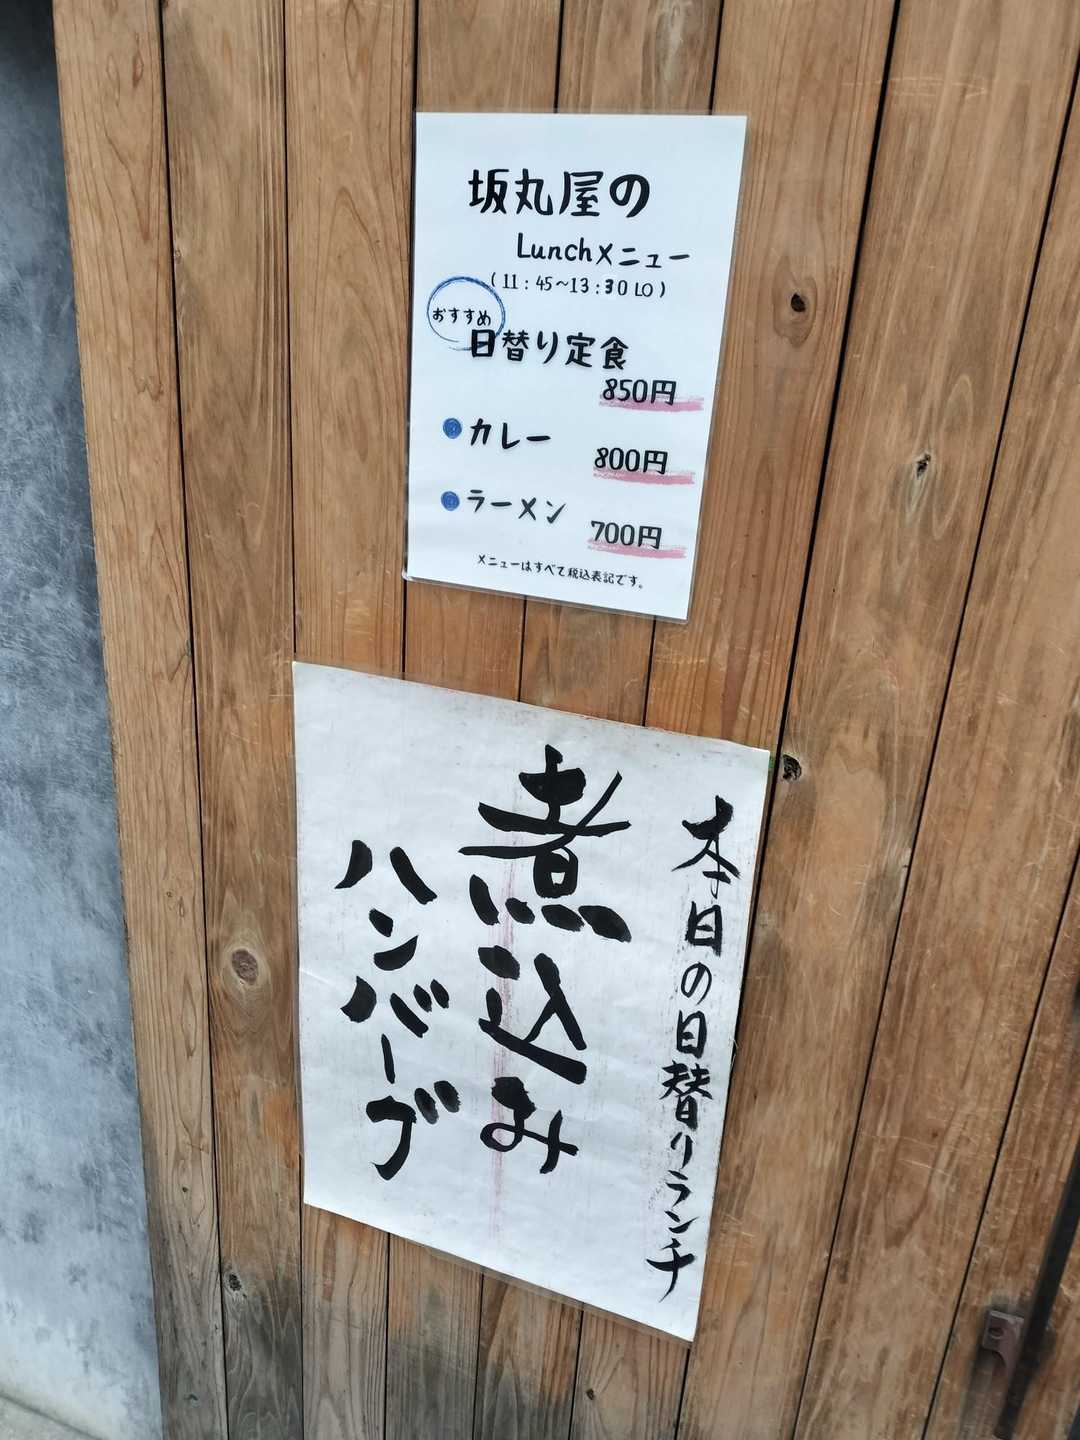 坂丸屋の
Lunchメニュー
(11:45～13:30 LO)
おすすめ
日替り定食
850円
カレー
800円
ラーメン
700円
メニューはすべて税込表記です。
本日の日替りランチ
煮込み
ハンバーグ